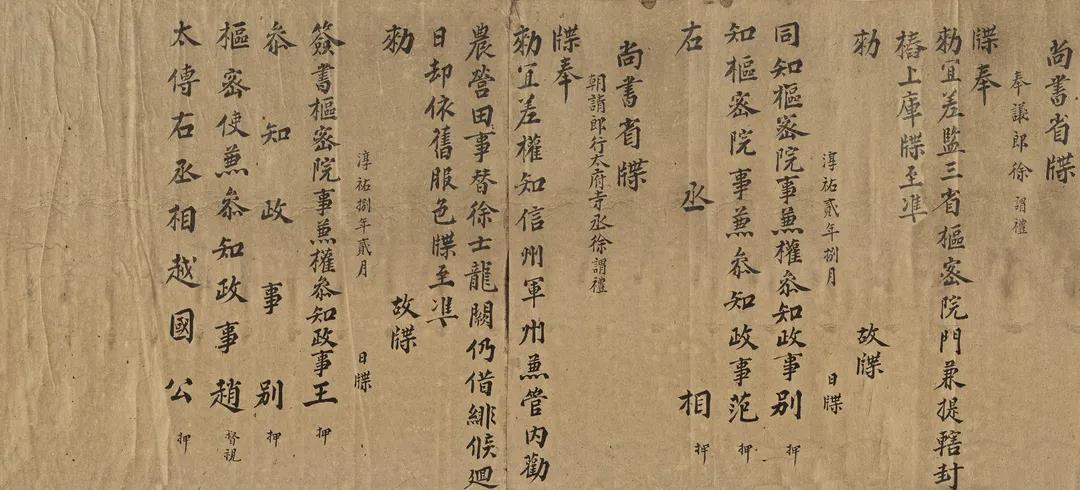 尚書省牒
奉議郎徐謂禮
牒奉
勑宜差監三省樞密院門兼提轄封
樁上庫牒至準
勑
故牒
淳祐貳年捌月
日牒
同知樞密院事兼權叅知政事別押
知樞密院事兼叅知政事范押
右丞相押
尚書省牒
朝請郎行太府寺丞徐謂禮
牒奉
勑宜差權知信州軍州兼管內勸
農營田事替徐士龍闕仍借緋候迴
日却依舊服色牒至準
勑
故牒
淳祐捌年貳月
日牒
簽書樞密院事兼權叅知政事王押
叅知政事別押
樞密使兼叅知政事趙督視
太傅右丞相越國公押